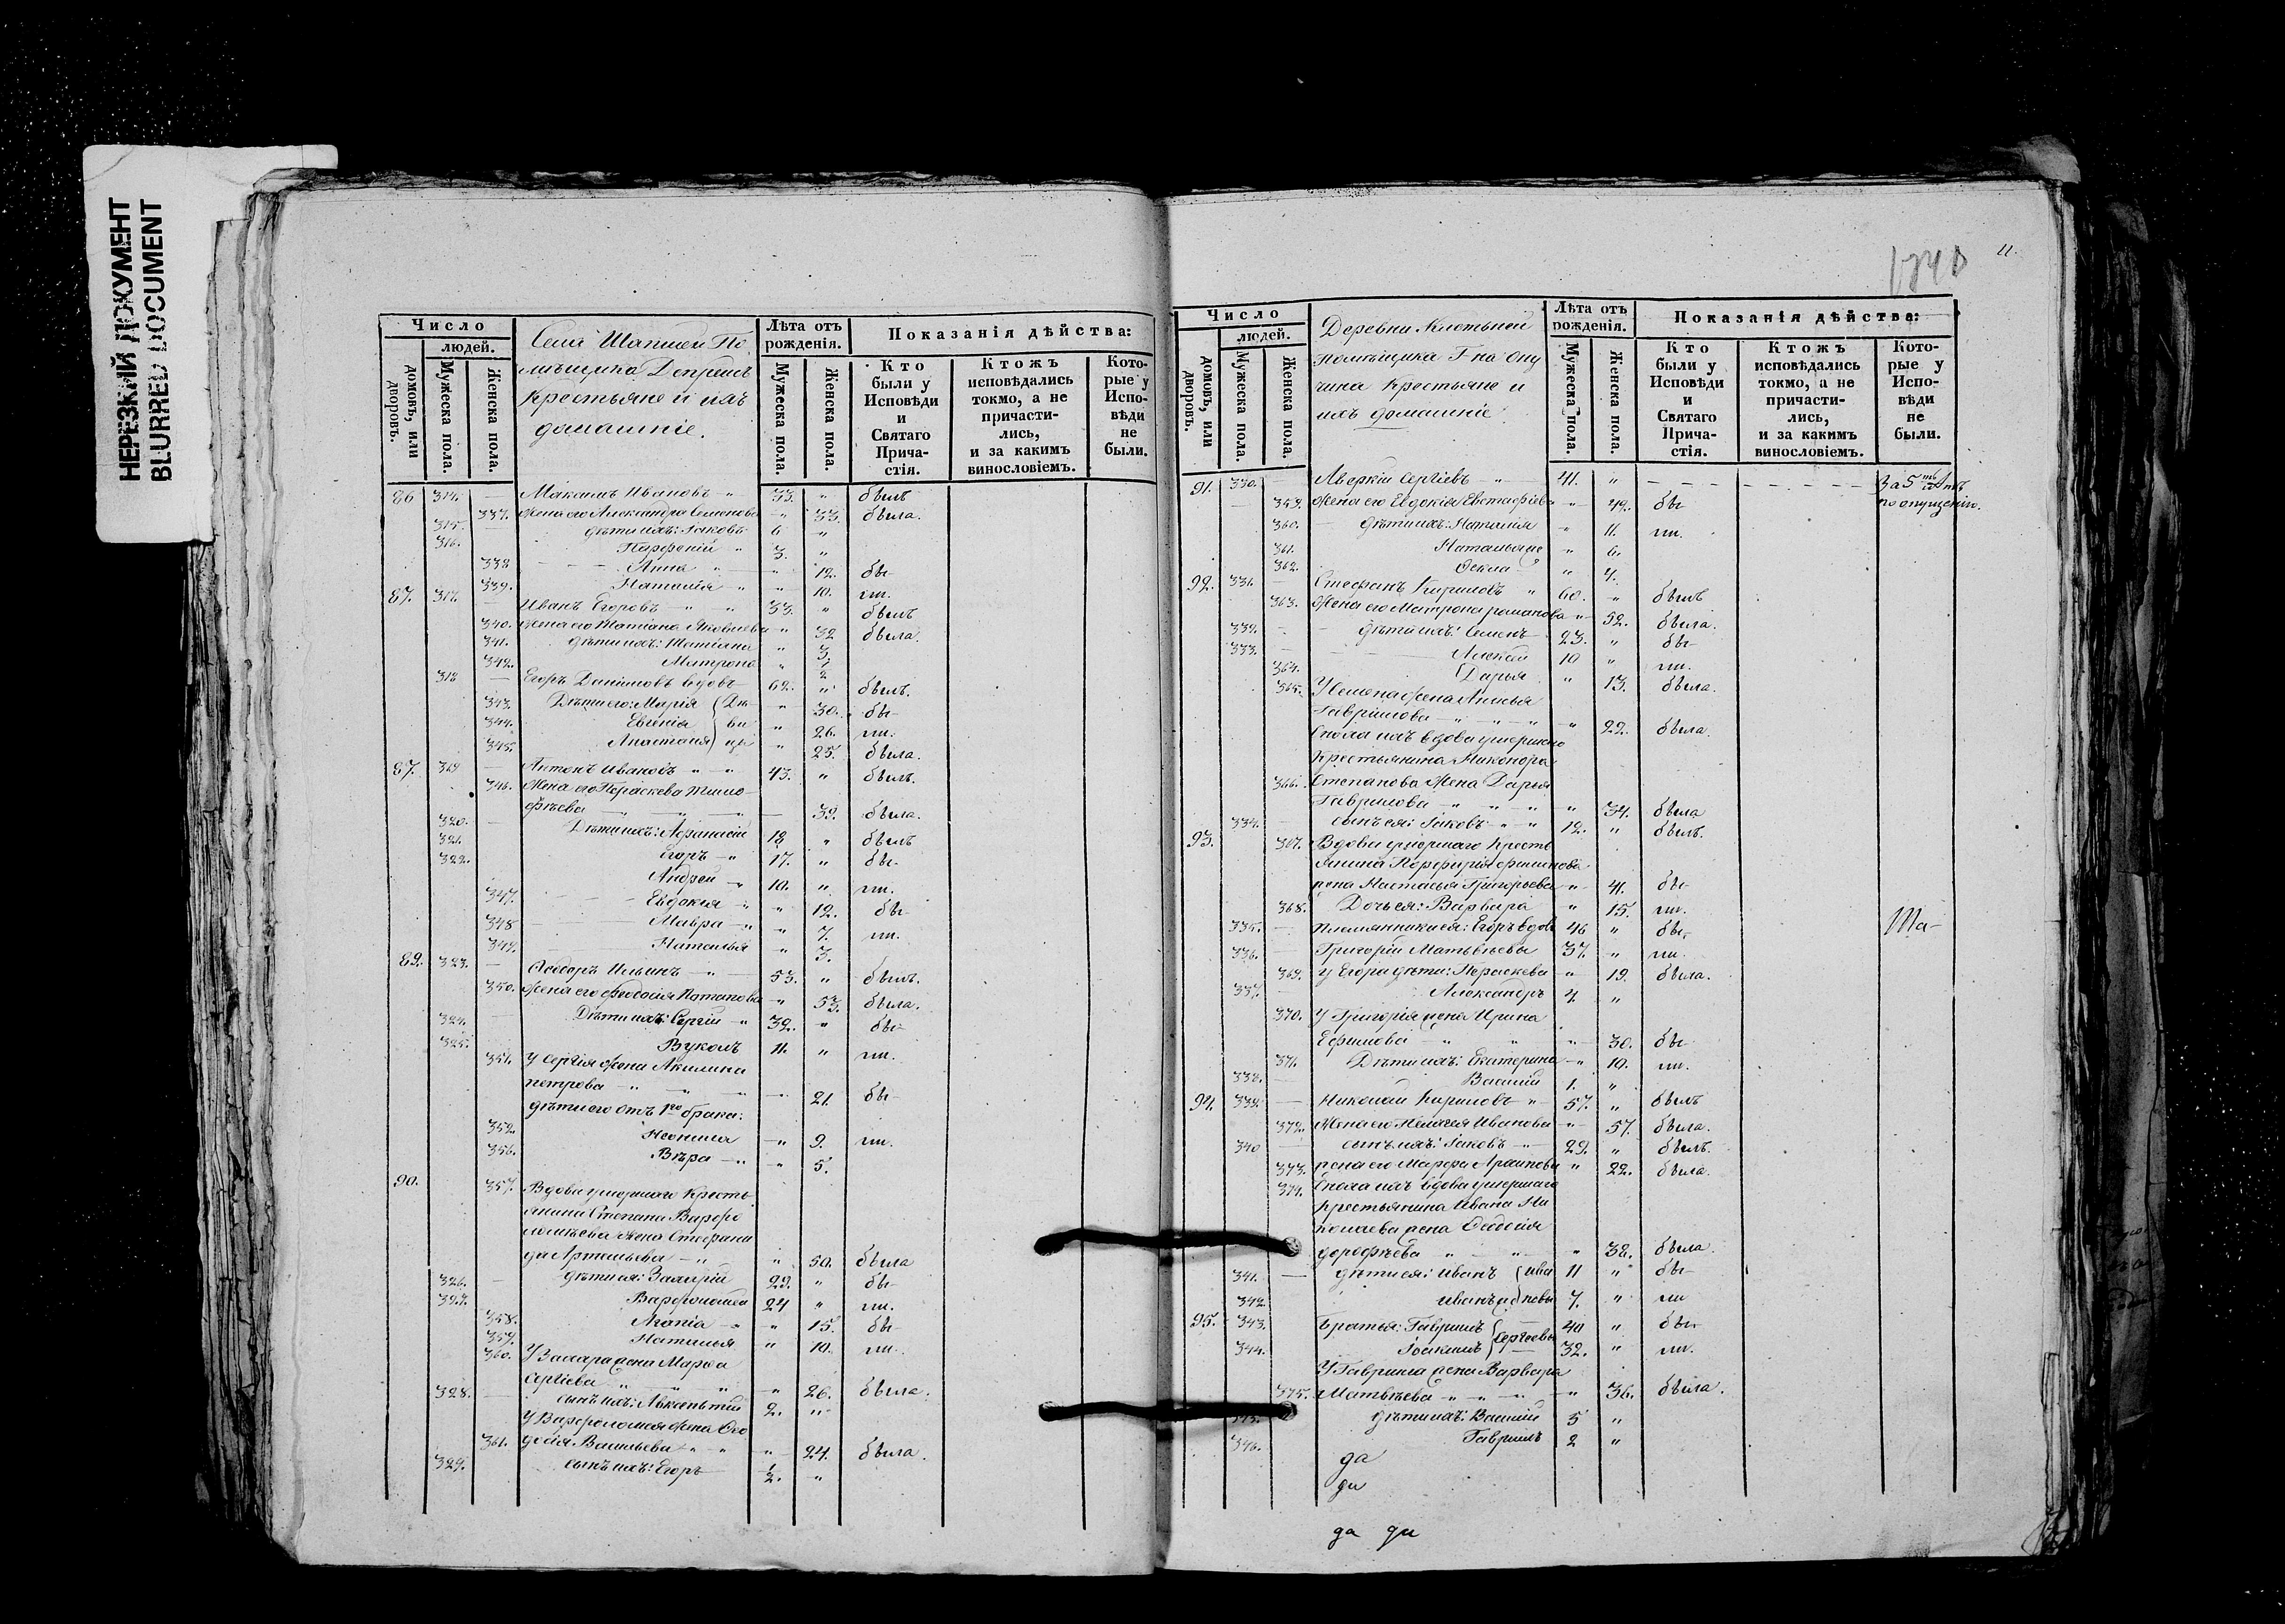 НЕРЕЗКИЙ ДОКУМЕНТ
BLURRED DOCUMENT
11.
Число
людей.
домовъ, или дворовъ.
Мужеска пола.
Женска пола.
Лѣта отъ рожденія.
Мужеска пола.
Женска пола.
Показанія дѣйства:
Кто были у Исповѣди и Святаго Прича-стія.
Ктожъ исповѣдались токмо, а не причасти-лись, и за какимъ винословіемъ.
Кото-рые у Испо-вѣди не были.
Крестьяне и ихъ
домашніе.
86 314. — Максимъ Ивановъ 33. " былъ
337. Жена его Александра Семенова " 33. была.
315. дѣти ихъ: Іаковъ 6 "
316. Парфеній 3. "
338 Анна " 12. бы-
339. Наталія " 10. ли.
87. 317. — Иванъ Егоровъ 33. " былъ
340. Жена его Татіана Яковлева " 32 была.
341. дѣти ихъ: Татіана " 3
342. Матрона "
318 — Егоръ Даниловъ вдовъ 62. " былъ.
343. Дѣти его: Марія " 30. бы-
344. Евгенія " 26. ли.
345. Анастасія " 25. была.
87. 319 — Антонъ Ивановъ 43. " былъ.
346. Жена его Параскева Тимо-
фѣева 39. была.
320. Дѣти ихъ: Афанасій 18 " былъ
321. Егоръ 17. " бы-
322. Андрей 10. " ли.
347. Евдокія " 12. бы-
348 Мавра " 7. ли.
349. Наталья " 3.
89. 323. — Ѳедоръ Ильинъ 53. " былъ.
350. Жена его Феодосія Потапова " 53. была.
324. Дѣти ихъ: Сергій 32. " бы-
325. Вуколъ 11. " ли.
351. У Сергія жена Акилина
петрова 21. бы-
дѣти его отъ 1го брака:
352. Неонила " 9. ли.
356. Вѣра " 5.
90. 357. Вдова умершаго Кресть-
янина Степана Варфо
ломѣева жена Стефани
да Артемьева " 50. была
326. дѣти ея: Захарій 29. " бы-
327. Варфоломей 24 " ли.
358. Агапія " 15. бы-
359. Наталья " 10. ли.
360. У Захара жена Марфа
Сергіева " 26. была.
328. сынъ ихъ: Авксентій 2. "
У Варфоломея жена Ѳео
361. досія Васильева " 24. была.
329. сынъ ихъ: Егоръ 1/2. "
Число
людей.
домовъ, или дворовъ.
Мужеска пола.
Женска пола.
Деревни
помѣщика Г-на
Крестьяне и
ихъ домашніе
Лѣта отъ рожденія.
Мужеска пола.
Женска пола.
Показанія дѣйства:
Кто были у Исповѣди и Святаго Прича-стія.
Ктожъ исповѣдались токмо, а не причасти-лись, и за какимъ винословіемъ.
Кото-рые у Испо-вѣди не были.
91. 330. — Аверкій Сергіевъ 41. " За 5 лѣтъ
353. Жена его Евдокія Евстафіева " 42. бы- по опущенію.
360. дѣти ихъ: Наталія " 11. ли.
361. Наталья " 6.
362. Ѳекла " 4.
92. 331. — Стефанъ Кириловъ 60. " былъ
363. Жена его Матрона романова " 52. была.
332. дѣти ихъ: Семенъ 23. " бы-
333. Алексѣй 10 " ли.
364. Дарья " 13. была.
365. У Семена жена Анисья
Гаврилова " 22. была.
Сноха ихъ вдова умершаго
Крестьянина Никонора
366. Степанова жена Дарья
Гаврилова " 34. была
334. сынъ ея: Іаковъ 12. " былъ.
93. 367. Вдова умершаго Кресть
янина Порфирія филипова
жена Настасья Григорьева " 41. бы-
368. Дочь ея: Варвара " 15. ли.
335. Племянники ея: Егоръ вдовъ 46 " бы-
336. Григорій Матвѣевы 37. " ли.
369. у Егора дѣти: Параскева " 19. была.
337. Александръ 4. "
370. У Григорія жена Ирина
Ефимова " 30. бы-
371. Дѣти ихъ: Екатерина " 10. ли.
338. Василій 1. "
94. 339. — Николай Кириловъ 57. " былъ
372. Жена его Пелагія Иванова " 57. была.
340 сынъ ихъ: Іаковъ 29. " былъ.
373. жена его Марфа Архипова " 22. была.
374. Сноха ихъ вдова умершаго
Крестьянина Ивана Ни
колаева жена Ѳедосія
дорофѣева " 38. была.
341. — дѣти ея: Иванъ Ива 11 " бы-
342 Иванъ новы 7. " ли
95. 343. Братья: Гавриилъ 40 " бы-
344. Іоакимъ Сергѣевы 32. " ли.
У Гавриила жена Варвара
375. Матвѣева " 36. была.
345. дѣти ихъ: Василій 5 "
346. Гавриилъ 2 "
да
ди
да ди